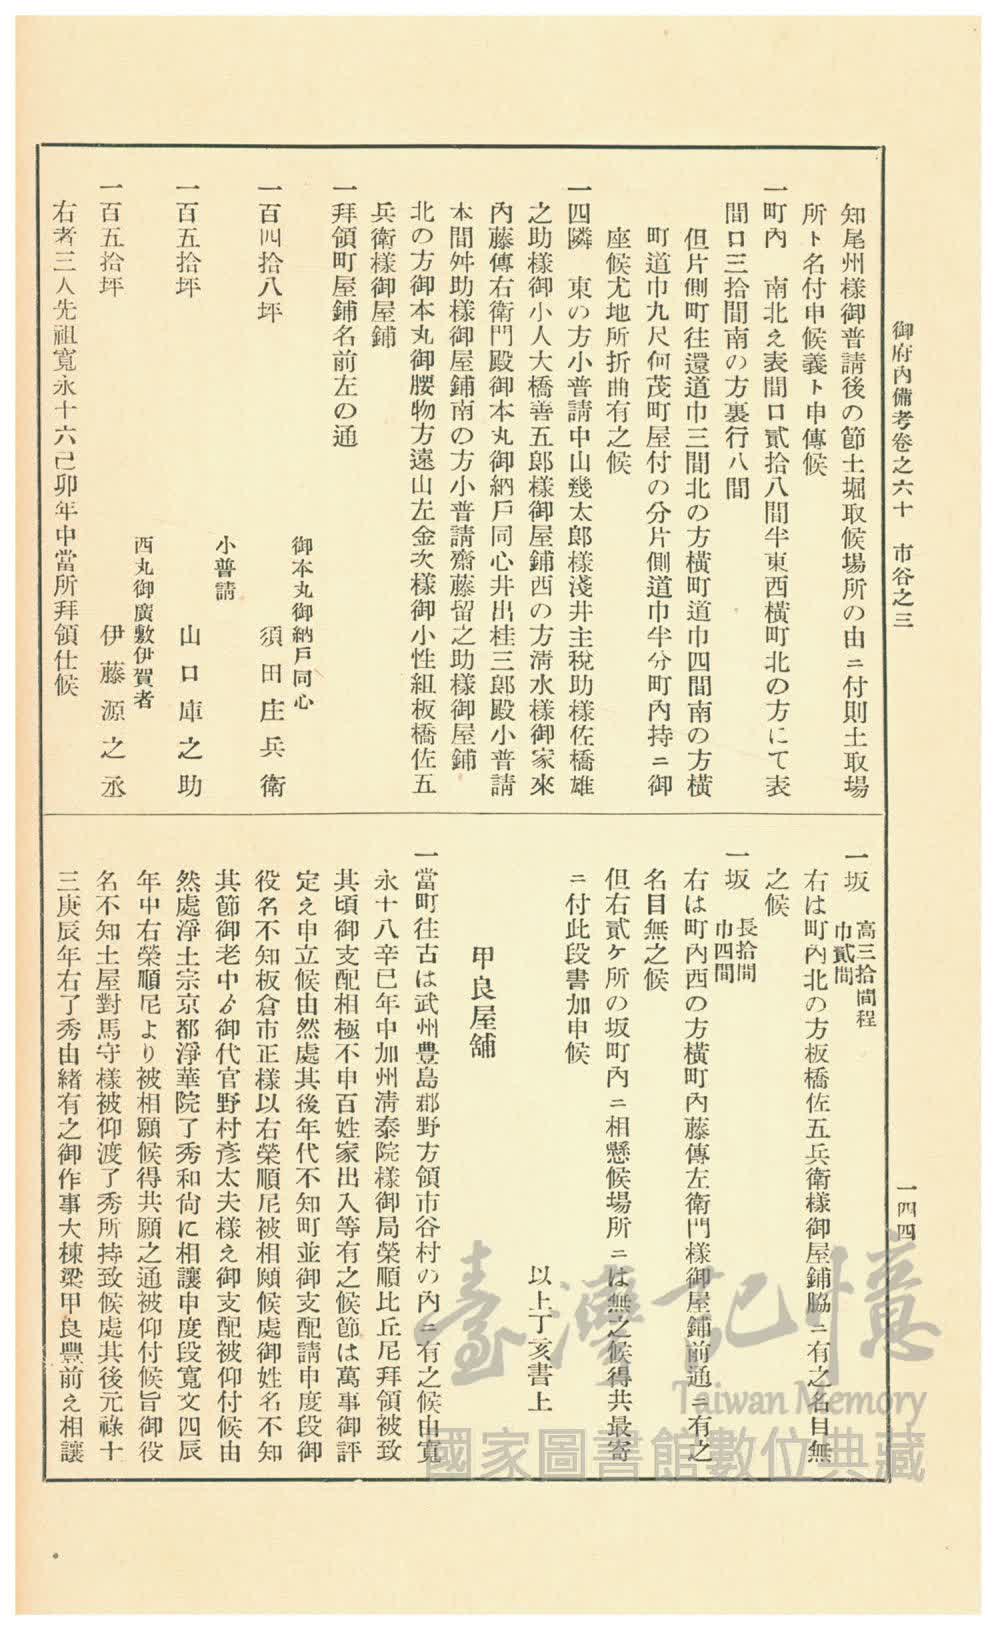 御府內備考卷之六十　市谷之三
一四四
知尾州樣御普請後の節土堀取候場所の由ニ付則土取場
所ト名付申候義ト申傳候
一町內　南北え表間口貳拾八間半東西橫町北の方にて表
間口三拾間南の方裏行八間
但片側町往還道巾三間北の方橫町道巾四間南の方橫
町道巾九尺何茂町屋付の分片側道巾半分町內持ニ御
座候尤地所折曲有之候
一四隣　東の方小普請中山幾太郎樣淺井主稅助樣佐橋雄
之助樣御小人大橋善五郎樣御屋鋪西の方淸水樣御家來
內藤傳右衞門殿御本丸御納戶同心井出桂三郎殿小普請
本間舛助樣御屋鋪南の方小普請齋藤留之助樣御屋鋪
北の方御本丸御腰物方遠山左金次樣御小性組板橋佐五
兵衞樣御屋鋪
一拜領町屋鋪名前左の通
御本丸御納戶同心
一百四拾八坪　須田庄兵衞
小普請
一百五拾坪　山口庫之助
西丸御廣敷伊賀者
一百五拾坪　伊藤源之丞
右者三人先祖寬永十六己卯年中當所拜領仕候
一坂　高三拾間程
巾貳間
右は町內北の方板橋佐五兵衞樣御屋鋪脇ニ有之名目無
之候
一坂　長拾間
巾四間
右は町內西の方橫町內藤傳左衞門樣御屋鋪前通ニ有之
名目無之候
但右貳ケ所の坂町內ニ相懸候場所ニは無之候得共最寄
ニ付此段書加申候
以上丁亥書上
甲良屋舖
一當町往古は武州豐島郡野方領市谷村の內ニ有之候由寬
永十八辛巳年中加州淸泰院樣御局榮順比丘尼拜領被致
其頃御支配相極不申百姓家出入等有之候節は萬事御評
定え申立候由然處其後年代不知町並御支配請申度段御
役名不知板倉市正樣以右榮順尼被相願候處御姓名不知
其節御老中ゟ御代官野村彥太夫樣え御支配被仰付候由
然處淨土宗京都淨華院了秀和尙に相讓申度段寬文四辰
年中右榮順尼より被相願候得共願之通被仰付候旨御役
名不知土屋對馬守樣被仰渡了秀所持致候處其後元祿十
三庚辰年右了秀由緖有之御作事大棟梁甲良豐前え相讓
臺灣記憶
Taiwan Memory
國家圖書館數位典藏